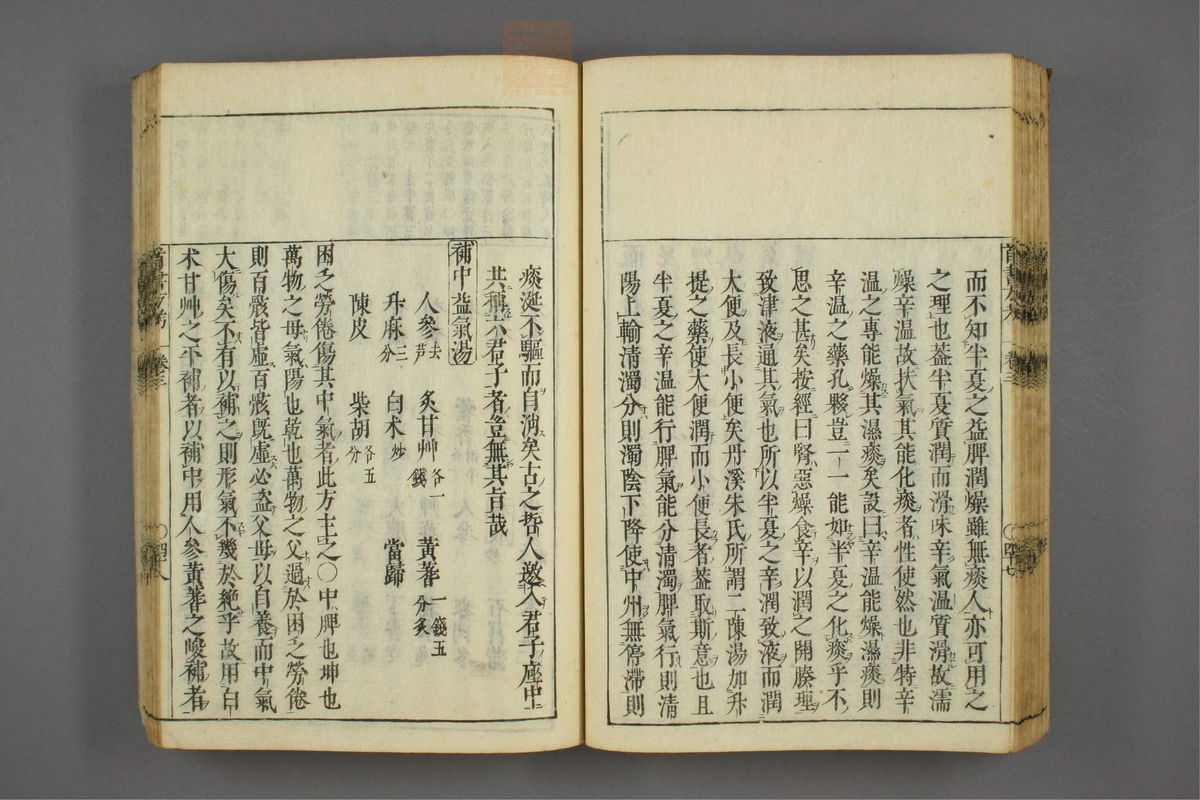 而不知半夏之益脾潤燥雖無痰人亦可用之
之理也蓋半夏質潤而滑味辛氣溫質滑故濡
燥辛溫故扶氣其能化痰者性使然也非特辛
溫之專能燥其濕痰矣設曰辛溫能燥濕痰則
辛溫之藥孔夥豈一一能如半夏之化痰乎不
思之甚矣按經曰腎惡燥食辛以潤之開腠理
致津液通其氣也所以半夏之辛潤致液而潤
大便及長小便矣丹溪朱氏所謂二陳湯加升
提之藥使大便潤而小便長者蓋取斯意也且
半夏之辛溫能行脾氣能分清濁脾氣行則清
陽上輸清濁分則濁陰下降使中州無停滯則
卷三
痰涎不驅而自消矣古之哲人邀人君子座中
共稱六君子者豈無其旨哉
補中益氣湯
人參去芦 炙甘艸各一錢 黃耆一錢五分炙
升麻三分 白朮炒 當歸
陳皮 柴胡各五分
困之勞倦傷其中氣者此方主之〇中脾也坤也
萬物之母氣陽也乾也萬物之父過於困之勞倦
則百骸皆虛百骸既虛必盜父母以自養而中氣
大傷矣不有以補之則形氣不幾於絶乎故用白
朮甘艸之平補者以補中用人參黃耆之峻補者
卷三